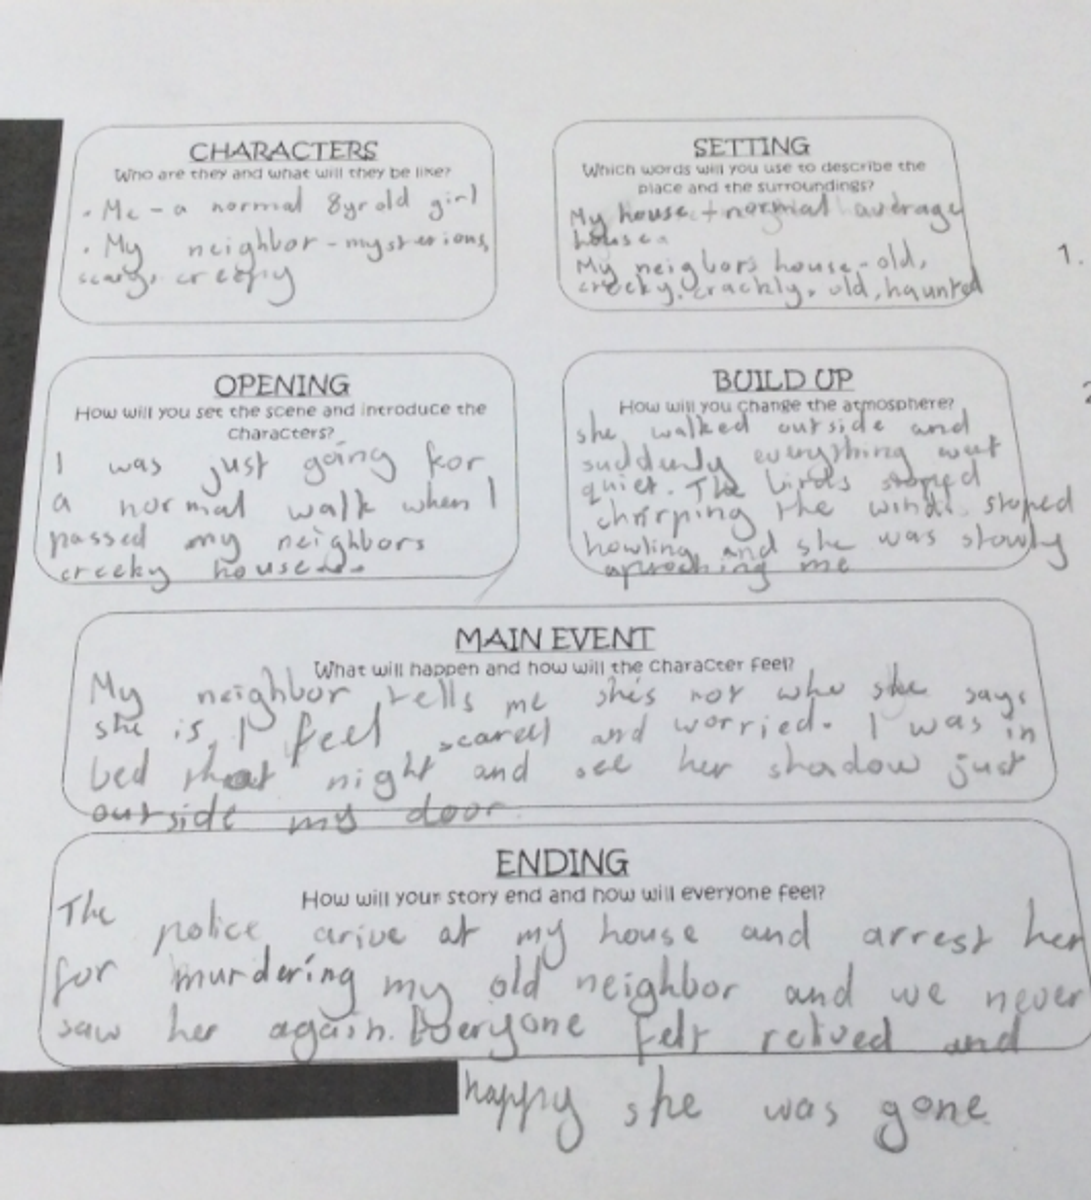 CHARACTERS
Who are they and what will they be like?
• Me - a normal 8yr old girl
• My neighbor - mysterious,
scary, creepy
SETTING
Which words will you use to describe the
place and the surroundings?
My house + normal average
house
My neigbors house - old,
creeky, crackly, old, haunted
1.
OPENING
How will you set the scene and introduce the
characters?
I was just going for
a normal walk when I
passed my neighbors
creeky house...
BUILD UP
How will you change the atmosphere?
she walked outside and
suddenly everything went
quiet. The birds stoped
chirping the wind stoped
howling and she was slowly
aproching me
2
MAIN EVENT
What will happen and how will the character feel?
My neighbor tells me shes not who she says
she is, I feel scared and worried. I was in
bed that night and see her shadow just
outside my door.
ENDING
How will your story end and how will everyone feel?
The police arive at my house and arrest her
for murdering my old neighbor and we never
saw her again. Everyone felt relived and
happy she was gone